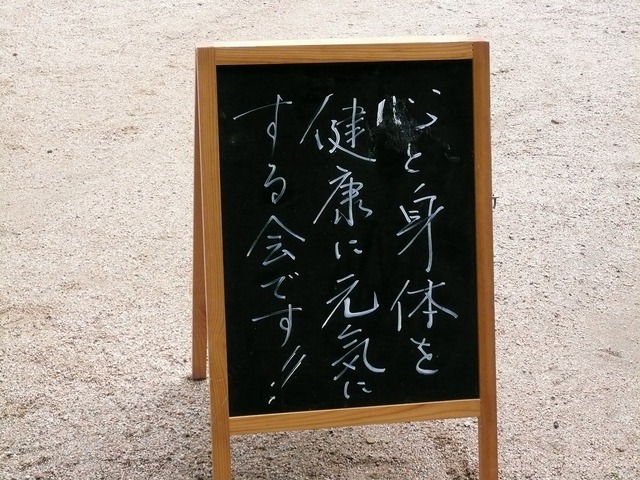 心と身体を
健康に元気に
する会です!!